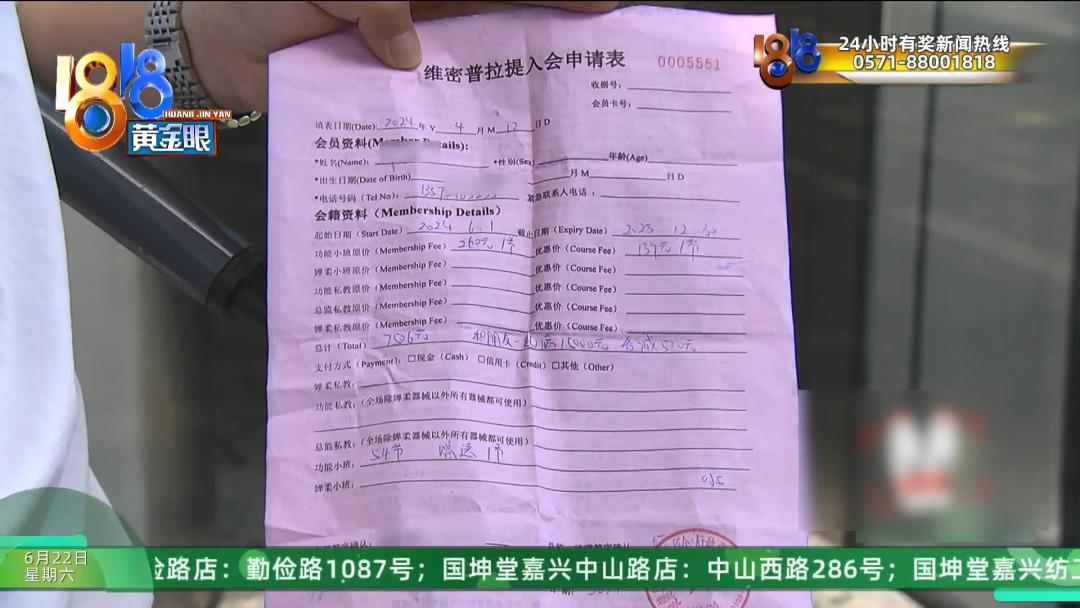 1818
HUANG JIN YAN
黄金眼
1818
24小时有奖新闻热线
0571-88001818
维密普拉提入会申请表
0005551
收据号:
会员卡号:
填表日期(Date): 2024 年 Y 4 月 M 12 日 D
会员资料(Member Details):
*姓名(Name): *性别(Sex) 年龄(Age)
*出生日期(Date of Birth) 月 M 日 D
*电话号码(Tel No): 1357 紧急联系人电话:
会籍资料(Membership Details)
起始日期(Start Date) 2024 6.1 截止日期(Expiry Date) 2025 12 30
功能小班原价(Membership Fee) 260元 1节 优惠价(Course Fee) 139元 1节
婵柔小班原价(Membership Fee) 优惠价(Course Fee)
功能私教原价(Membership Fee) 优惠价(Course Fee)
总监私教原价(Membership Fee) 优惠价(Course Fee)
婵柔私教原价(Membership Fee) 优惠价(Course Fee)
总计(Total) 7506元 和朋友一起满15000元 各减500元
支付方式(Payment): □现金(Cash) □信用卡(Credit) □其他(Other)
婵柔私教:
功能私教:(全场除婵柔器械以外所有器械都可使用)
总监私教:(全场除婵柔器械以外所有器械都可使用)
功能小班: 54节 赠送 1节
婵柔小班:
6月22日
星期六
俭路店:勤俭路1087号;国坤堂嘉兴中山路店:中山西路286号;国坤堂嘉兴纺工